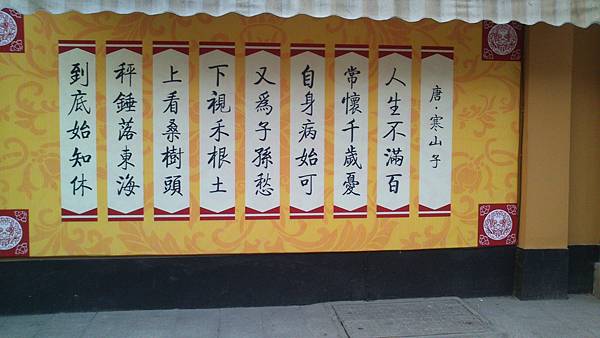 唐·寒山子
人生不滿百
常懷千歲憂
自身病始可
又為子孫愁
下視禾根土
上看桑樹頭
秤錘落東海
到底始知休